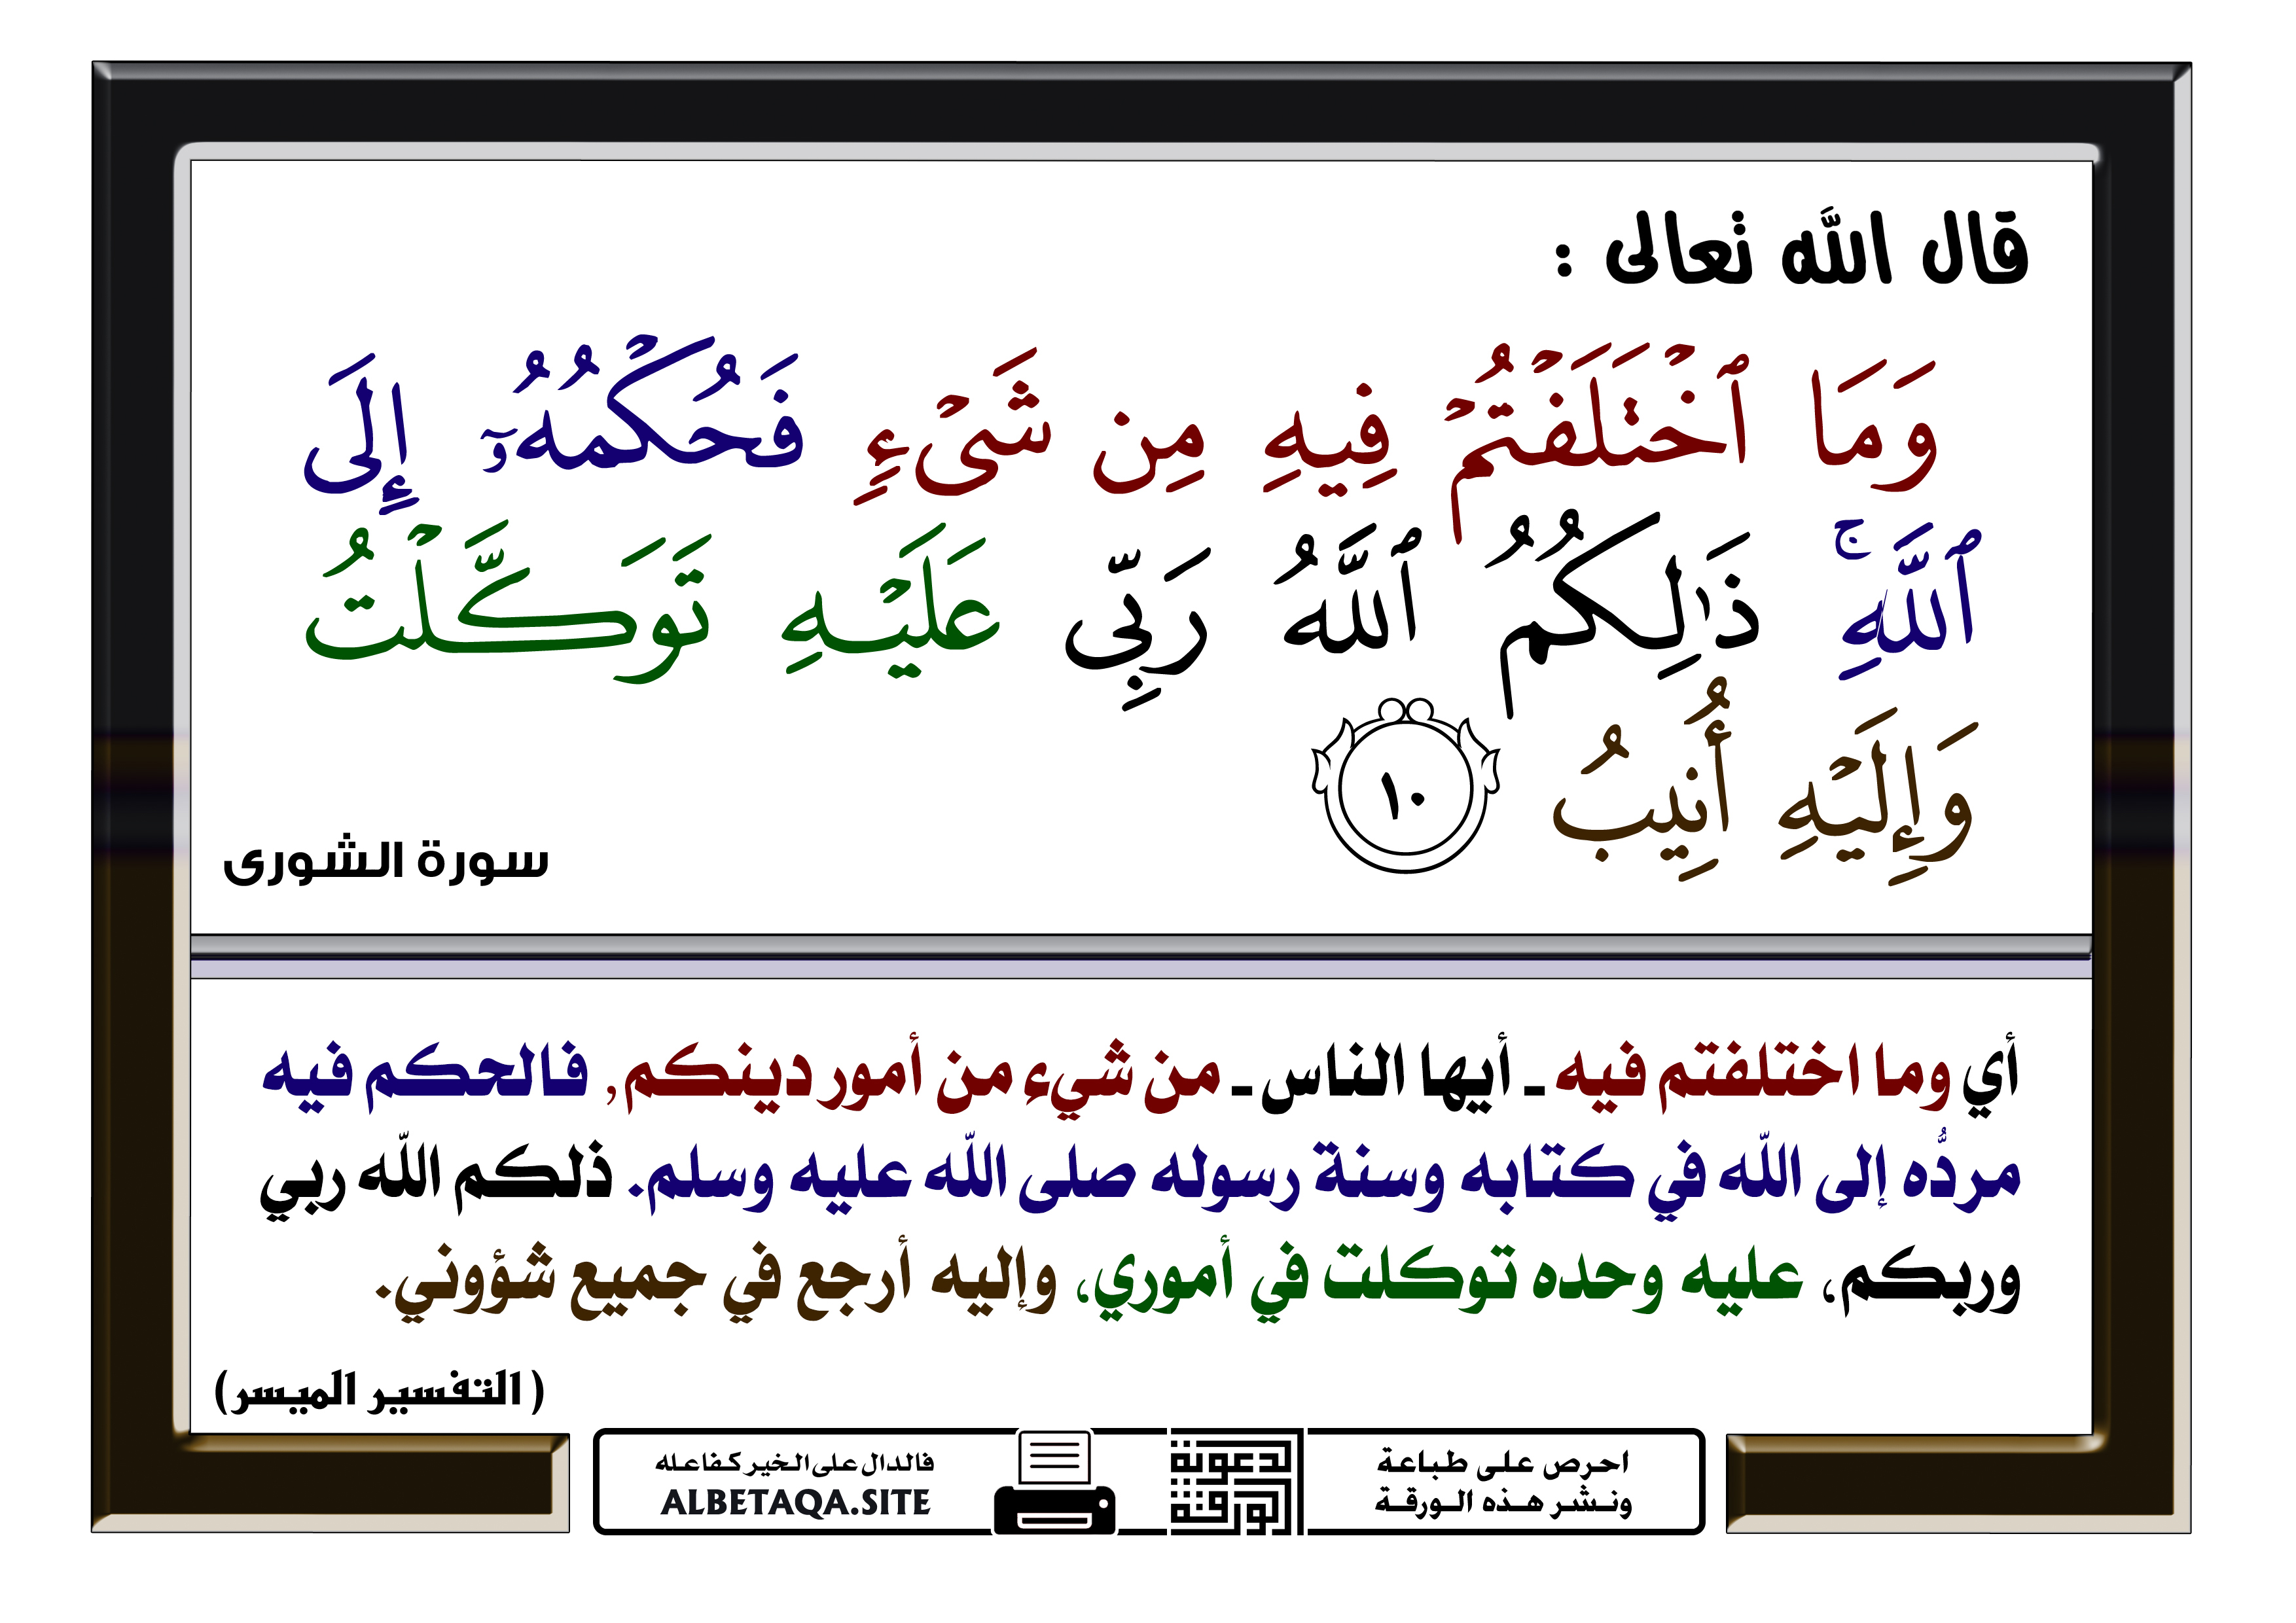 قال الله تعالى :
وَمَا ٱخۡتَلَفۡتُمۡ فِيهِ مِن شَيۡءٖ فَحُكۡمُهُۥٓ إِلَى
ٱللَّهِۚ ذَٰلِكُمُ ٱللَّهُ رَبِّي عَلَيۡهِ تَوَكَّلۡتُ
وَإِلَيۡهِ أُنِيبُ ١٠
سورة الشورى
أي وما اختلفتم فيه ـ أيها الناس ـ من شيء من أمور دينكم, فالحكم فيه
مردُّه إلى اللّه في كتابه وسنة رسوله صلى اللّه عليه وسلم. ذلكم اللّه ربي
وربكم، عليه وحده توكلت في أموري، وإليه أرجع في جميع شؤوني.
( التفسير الميسر)
احرص على طباعة
ونشر هذه الورقة
الورقة
الدعوية
فالدال على الخير كفاعله
ALBETAQA.SITE